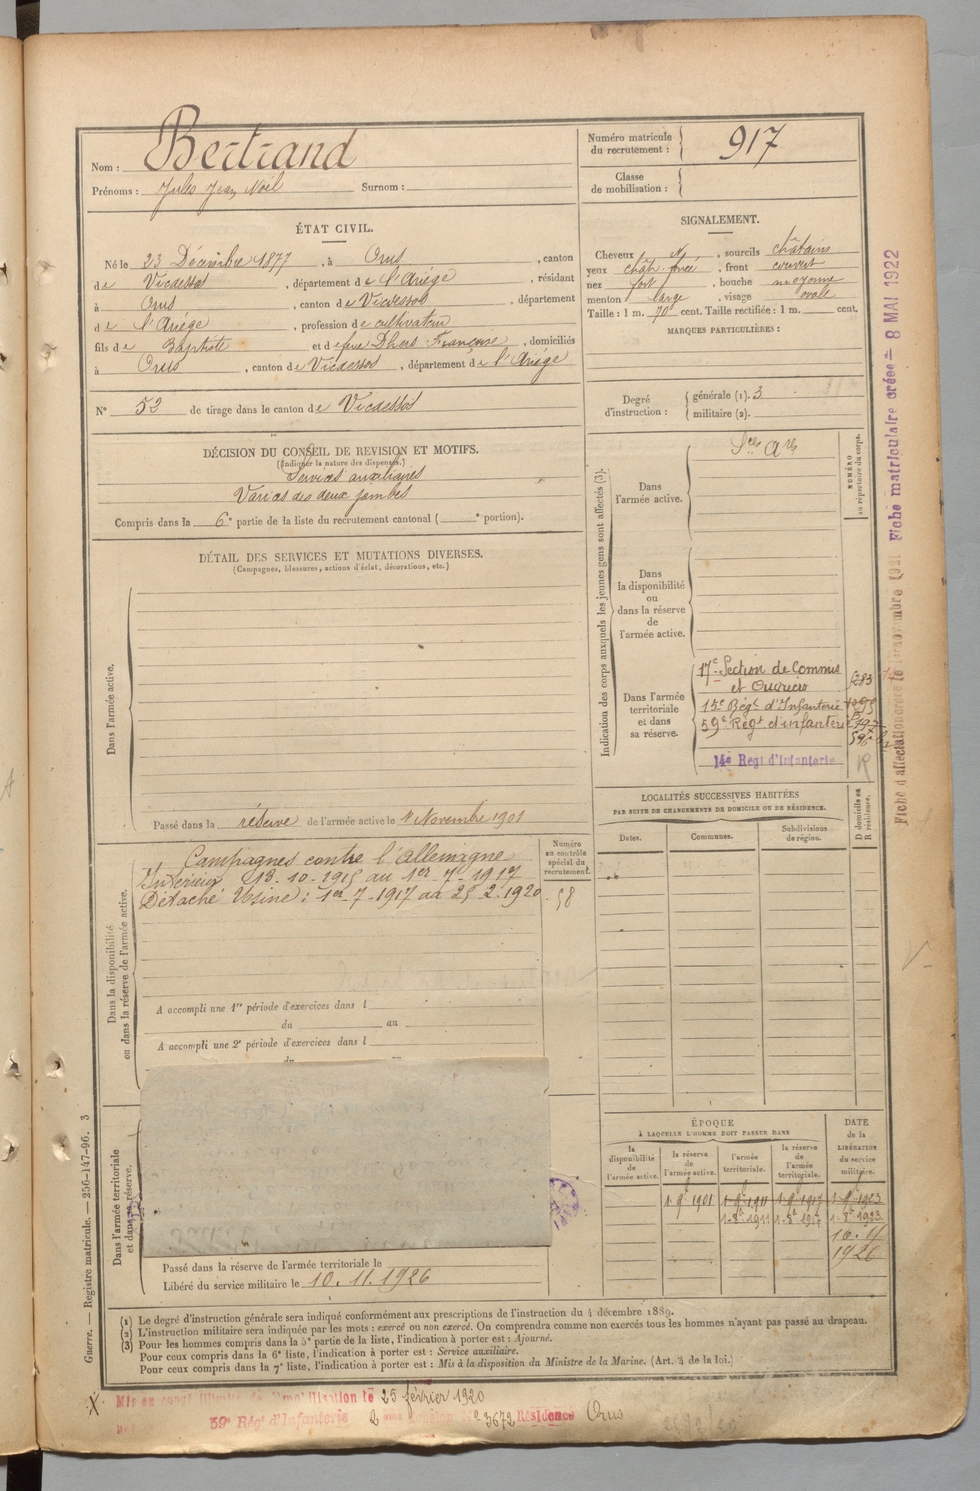 Nom : Bertrand
Prénoms : Jules Jean Noël Surnom :
Numéro matricule du recrutement : 917
Classe de mobilisation :
ÉTAT CIVIL.
Né le 23 Décembre 1877, à Orus, canton
de Vicdessos, département de l'Ariége, résidant
à Orus, canton de Vicdessos, département
de l'Ariége, profession de cultivateur
fils de Baptiste et de feue Dhers Françoise, domiciliés
à Orus, canton de Vicdessos, département de l'Ariége
N° 52 de tirage dans le canton de Vicdessos
SIGNALEMENT.
Cheveux N, sourcils châtains
yeux chât. foncé, front couvert
nez fort, bouche moyenne
menton large, visage ovale
Taille : 1 m. 70 cent. Taille rectifiée : 1 m. cent.
MARQUES PARTICULIÈRES :
Degré d'instruction :
générale (1). 3
militaire (2).
DÉCISION DU CONSEIL DE REVISION ET MOTIFS.
(Indiquer la nature des dispenses.)
Services auxiliaires
Varices des deux jambes
Compris dans la 6e partie de la liste du recrutement cantonal ( e portion).
DÉTAIL DES SERVICES ET MUTATIONS DIVERSES.
(Campagnes, blessures, actions d'éclat, décorations, etc.)
Dans l'armée active.
Passé dans la réserve de l'armée active le 1 Novembre 1901
Dans la disponibilité ou dans la réserve de l'armée active.
Numéro au contrôle spécial du recrutement.
58
Campagnes contre l'Allemagne
Intérieur 13-10-1915 au 1er-7-1917
Détaché Usine : 1er-7-1917 au 25-2-1920
A accompli une 1re période d'exercices dans l
du au
A accompli une 2e période d'exercices dans l
du au
Dans l'armée territoriale et dans sa réserve.
Passé dans la réserve de l'armée territoriale le
Libéré du service militaire le 10.11.1926
Indication des corps auxquels les jeunes gens sont affectés (3).
NUMÉRO au répertoire du corps.
Dans l'armée active.
Sces Ares
Dans la disponibilité ou dans la réserve de l'armée active.
Dans l'armée territoriale et dans sa réserve.
17e Section de Commis
et Ouvriers
15e Régt d'Infanterie
59e Régt d'infanterie
14e Régt d'Infanterie
LOCALITÉS SUCCESSIVES HABITÉES
PAR SUITE DE CHANGEMENTS DE DOMICILE OU DE RÉSIDENCE.
D domicile ou R résidence.
R
Dates. Communes. Subdivisions de région.
ÉPOQUE
À LAQUELLE L'HOMME DOIT PASSER DANS
DATE de la LIBÉRATION du service militaire.
la disponibilité de l'armée active. la réserve de l'armée active. l'armée territoriale. la réserve de l'armée territoriale.
1-9e 1901 1-9e 1911 1-9e 1917 1-9e 1923
1-8e 1911 1-8e 1917 1-8e 1923
10. 11
1926
(1) Le degré d'instruction générale sera indiqué conformément aux prescriptions de l'instruction du 4 décembre 1889.
(2) L'instruction militaire sera indiquée par les mots : exercé ou non exercé. On comprendra comme non exercés tous les hommes n'ayant pas passé au drapeau.
(3) Pour les hommes compris dans la 5e partie de la liste, l'indication à porter est : Ajourné.
Pour ceux compris dans la 6e liste, l'indication à porter est : Service auxiliaire.
Pour ceux compris dans la 7e liste, l'indication à porter est : Mis à la disposition du Ministre de la Marine. (Art. 4 de la loi.)
Mis en congé illimité de démobilisation le 25 février 1920
59e Rég' d'Infanterie 2 ème échelon N° 3672 Résidence Orus
Guerre. — Registre matricule. — 256-147-96. 3
Fiche matriculaire créée = 8 MAI 1922